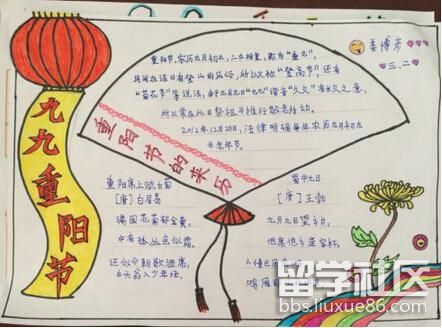 九九重阳节
重阳节,农历九月初九,二九相重,称为"重九",
民间在该日有登高的风俗,所以又称"登高节",还有
"菊花节"等说法,由于九月九日"九九"谐音"久久"有长久之意,
所以常在此日祭祖与推行敬老活动。
2012年12月28日,法律明确每年农历九月初九
为老年节。
重阳节的来历
姜博
三.二
重阳席上赋白菊
[唐]白居易
满园花菊郁金黄,
中有孤丛色似霜。
还似今朝歌酒席,
白头翁入少年场。
蜀中九日
[唐]王勃
九月九日望乡台,
他席他乡送客杯。
人情已厌
鸿雁
留学社区
bbs.liuxue86.com